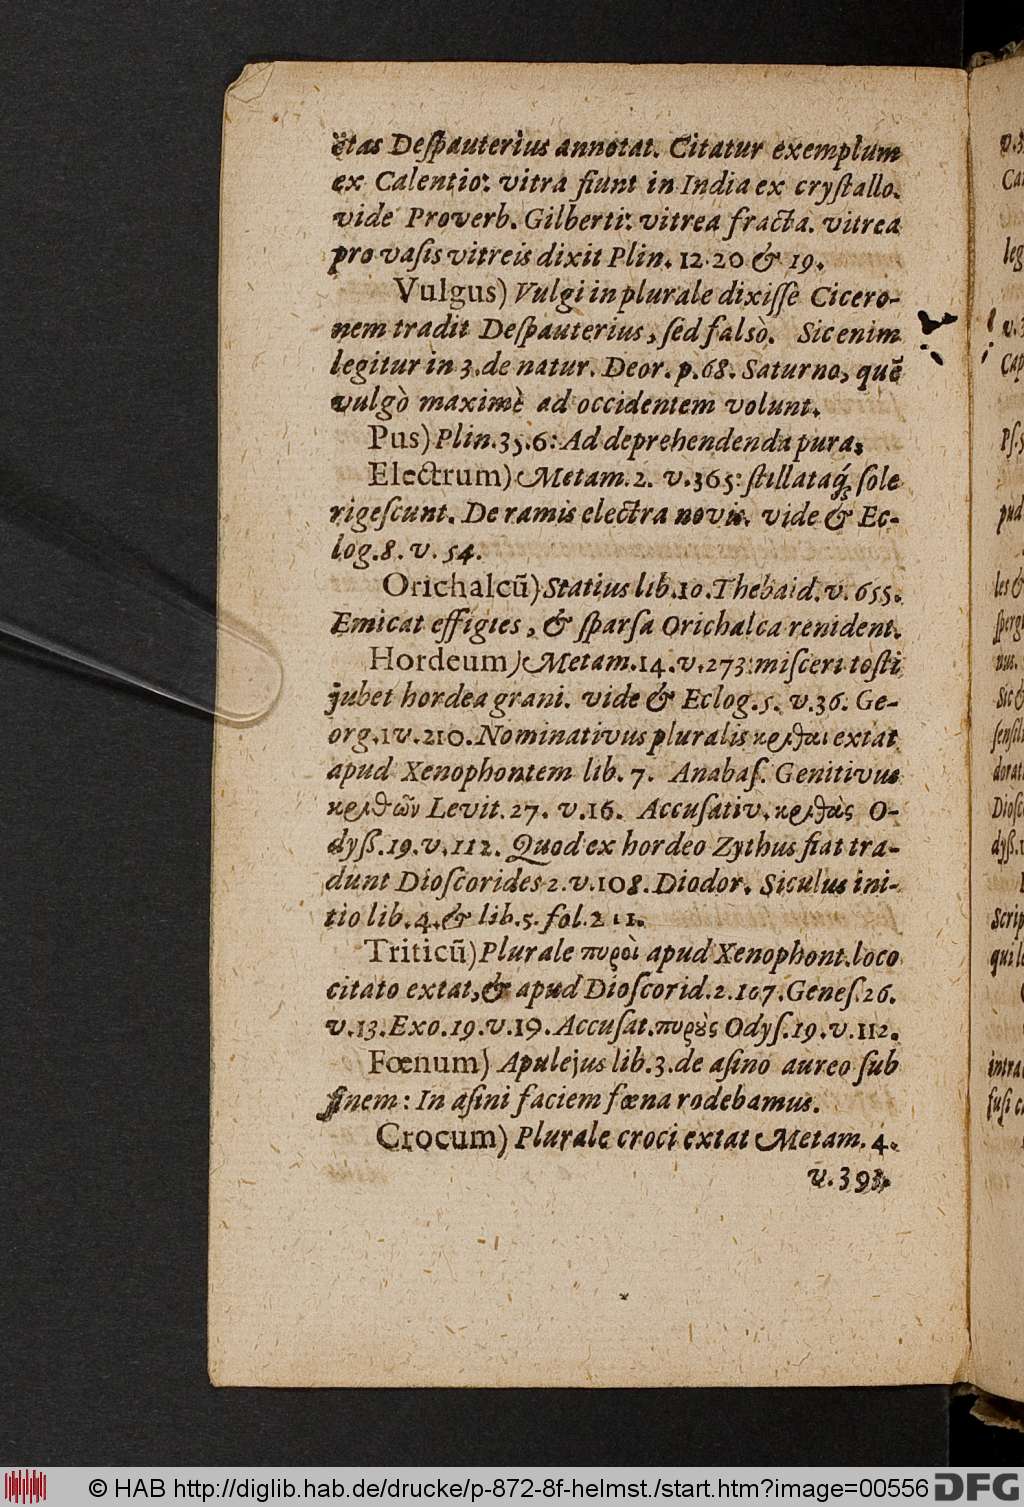 ëtas Deſpauterius annotat. Citatur exemplum
ex Calentio: vitra fiunt in India ex cryſtallo.
vide Proverb. Gilberti: vitrea fracta. vitrea
pro vaſis vitreis dixit Plin. 12. 20 & 19.
Vulgus) Vulgi in plurale dixiſſe Cicero-
nem tradit Deſpauterius, ſed falsò. Sic enim
legitur in 3. de natur. Deor. p. 68. Saturno, quẽ
vulgò maximè ad occidentem volunt.
Pus) Plin. 35. 6: Ad deprehendenda pura.
Electrum) Metam. 2. v. 365: ſtillataq́; ſole
rigeſcunt. De ramis electra novis. vide & Ec-
log. 8. v. 54.
Orichalcũ) Statius lib. 10. Thebaid. v. 655.
Emicat effigies, & ſparſa Orichalca renident.
Hordeum) Metam. 14. v. 273: miſceri toſti
jubet hordea grani. vide & Eclog. 5. v. 36. Ge-
org. 1 v. 210. Nominativus pluralis κριθαι extat
apud Xenophontem lib. 7. Anabaſ. Genitivus
κριθῶν Levit. 27. v. 16. Accuſativ. κριθὰς O-
dyß. 19. v. 112. Quod ex hordeo Zythus fiat tra-
dunt Dioſcorides 2. v. 108. Diodor. Siculus ini-
tio lib. 4. & lib. 5. fol. 211.
Triticũ) Plurale πυροὶ apud Xenophont. loco
citato extat, & apud Dioſcorid. 2. 107. Geneſ. 26.
v. 13. Exo. 19. v. 19. Accuſat. πυρȣ̀ς Odyſ. 19. v. 112.
Fœnum) Apulejus lib. 3. de aſino aureo ſub
finem: In aſini faciem fœna rodebamus.
Crocum) Plurale croci extat Metam. 4.
v. 393.
© HAB http://diglib.hab.de/drucke/p-872-8f-helmst./start.htm?image=00556
DFG